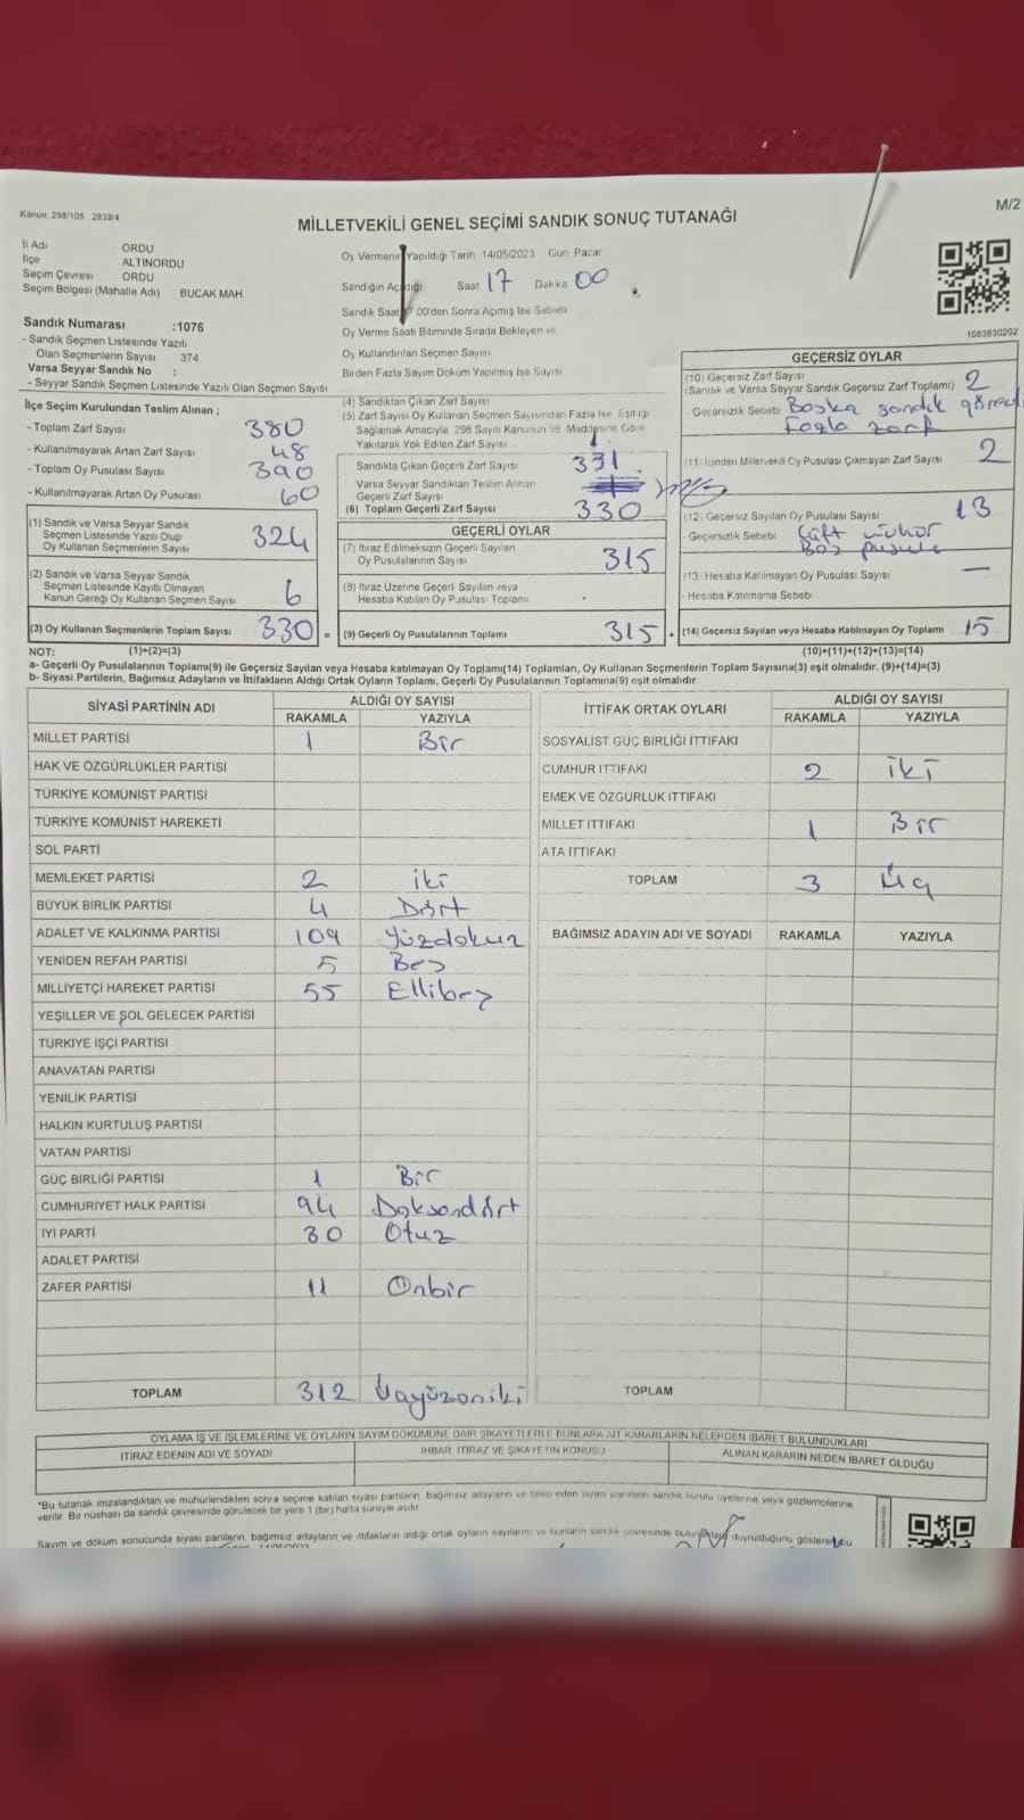 Kanun: 298/105 2839/4
M/2
MİLLETVEKİLİ GENEL SEÇİMİ SANDIK SONUÇ TUTANAĞI
İl Adı ORDU
İlçe ALTINORDU
Seçim Çevresi ORDU
Seçim Bölgesi (Mahalle Adı) BUCAK MAH.
Sandık Numarası :1076
- Sandık Seçmen Listesinde Yazılı
Olan Seçmenlerin Sayısı 374
Varsa Seyyar Sandık No :
- Seyyar Sandık Seçmen Listesinde Yazılı Olan Seçmen Sayısı
İlçe Seçim Kurulundan Teslim Alınan ;
- Toplam Zarf Sayısı 380
- Kullanılmayarak Artan Zarf Sayısı 48
- Toplam Oy Pusulası Sayısı 390
- Kullanılmayarak Artan Oy Pusulası 60
(1) Sandık ve Varsa Seyyar Sandık
Seçmen Listesinde Yazılı Olup
Oy Kullanan Seçmenlerin Sayısı 324
(2) Sandık ve Varsa Seyyar Sandık
Seçmen Listesinde Kayıtlı Olmayan
Kanun Gereği Oy Kullanan Seçmen Sayısı 6
(3) Oy Kullanan Seçmenlerin Toplam Sayısı 330 =
Oy Vermenin Yapıldığı Tarih 14/05/2023 Gün Pazar
Sandığın Açıldığı Saat 17 Dakika 00
Sandık Saat 17:00'den Sonra Açılmış İse Sebebi
Oy Verme Saati Bitiminde Sırada Bekleyen ve
Oy Kullandırılan Seçmen Sayısı
Birden Fazla Sayım Döküm Yapılmış İse Sayısı
(4) Sandıktan Çıkan Zarf Sayısı
(5) Zarf Sayısı Oy Kullanan Seçmen Sayısından Fazla İse Eşitliği
Sağlamak Amacıyla, 298 Sayılı Kanunun 98. Maddesine Göre
Yakılarak Yok Edilen Zarf Sayısı 1
Sandıkta Çıkan Geçerli Zarf Sayısı 331
Varsa Seyyar Sandıktan Teslim Alınan
Geçerli Zarf Sayısı
(6) Toplam Geçerli Zarf Sayısı 330
GEÇERLİ OYLAR
(7) İtiraz Edilmeksizin Geçerli Sayılan
Oy Pusulalarının Sayısı 315
(8) İtiraz Üzerine Geçerli Sayılan veya
Hesaba Katılan Oy Pusulası Toplamı
(9) Geçerli Oy Pusulalarının Toplamı 315 +
1083830202
GEÇERSİZ OYLAR
(10) Geçersiz Zarf Sayısı
(Sandık ve Varsa Seyyar Sandık Geçersiz Zarf Toplamı) 2
Geçersizlik Sebebi Başka sandık
Fazla zarf
(11) İçinden Milletvekili Oy Pusulası Çıkmayan Zarf Sayısı 2
(12) Geçersiz Sayılan Oy Pusulası Sayısı 13
- Geçersizlik Sebebi Çift mühür
Boş pusula
(13) Hesaba Katılmayan Oy Pusulası Sayısı —
- Hesaba Katılmama Sebebi
(14) Geçersiz Sayılan veya Hesaba Katılmayan Oy Toplamı 15
NOT: (1)+(2)=(3) (10)+(11)+(12)+(13)=(14)
a- Geçerli Oy Pusulalarının Toplamı(9) ile Geçersiz Sayılan veya Hesaba katılmayan Oy Toplamı(14) Toplamları, Oy Kullanan Seçmenlerin Toplam Sayısına(3) eşit olmalıdır. (9)+(14)=(3)
b- Siyasi Partilerin, Bağımsız Adayların ve İttifakların Aldığı Ortak Oyların Toplamı, Geçerli Oy Pusulalarının Toplamına(9) eşit olmalıdır
SİYASİ PARTİNİN ADI ALDIĞI OY SAYISI
RAKAMLA YAZIYLA
MİLLET PARTİSİ 1 Bir
HAK VE ÖZGÜRLÜKLER PARTİSİ
TÜRKİYE KOMÜNİST PARTİSİ
TÜRKİYE KOMÜNİST HAREKETİ
SOL PARTİ
MEMLEKET PARTİSİ 2 iki
BÜYÜK BİRLİK PARTİSİ 4 Dört
ADALET VE KALKINMA PARTİSİ 109 Yüzdokuz
YENİDEN REFAH PARTİSİ 5 Beş
MİLLİYETÇİ HAREKET PARTİSİ 55 Ellibeş
YEŞİLLER VE SOL GELECEK PARTİSİ
TÜRKİYE İŞÇİ PARTİSİ
ANAVATAN PARTİSİ
YENİLİK PARTİSİ
HALKIN KURTULUŞ PARTİSİ
VATAN PARTİSİ
GÜÇ BİRLİĞİ PARTİSİ 1 Bir
CUMHURİYET HALK PARTİSİ 94 Doksandört
İYİ PARTİ 30 Otuz
ADALET PARTİSİ
ZAFER PARTİSİ 11 Onbir
TOPLAM 312 Üçyüzoniki
İTTİFAK ORTAK OYLARI ALDIĞI OY SAYISI
RAKAMLA YAZIYLA
SOSYALİST GÜÇ BİRLİĞİ İTTİFAKI
CUMHUR İTTİFAKI 2 iki
EMEK VE ÖZGÜRLÜK İTTİFAKI
MİLLET İTTİFAKI 1 Bir
ATA İTTİFAKI
TOPLAM 3 Üç
BAĞIMSIZ ADAYIN ADI VE SOYADI RAKAMLA YAZIYLA
TOPLAM
OYLAMA İŞ VE İŞLEMLERİNE VE OYLARIN SAYIM DÖKÜMÜNE DAİR ŞİKAYETLERLE BUNLARA AİT KARARLARIN NELERDEN İBARET BULUNDUKLARI
İTİRAZ EDENİN ADI VE SOYADI İHBAR, İTİRAZ VE ŞİKAYETİN KONUSU ALINAN KARARIN NEDEN İBARET OLDUĞU
*Bu tutanak imzalandıktan ve mühürlendikten sonra seçime katılan siyasi partilerin, bağımsız adayların ve
verilir. Bir nüshası da sandık çevresinde görülecek bir yere 1 (bir) hafta süreyle asılır
Sayım ve döküm sonucunda siyasi partilerin, bağımsız adayların ve ittifakların aldığı ortak oyların sayılarını ve bunların sandık çevresinde